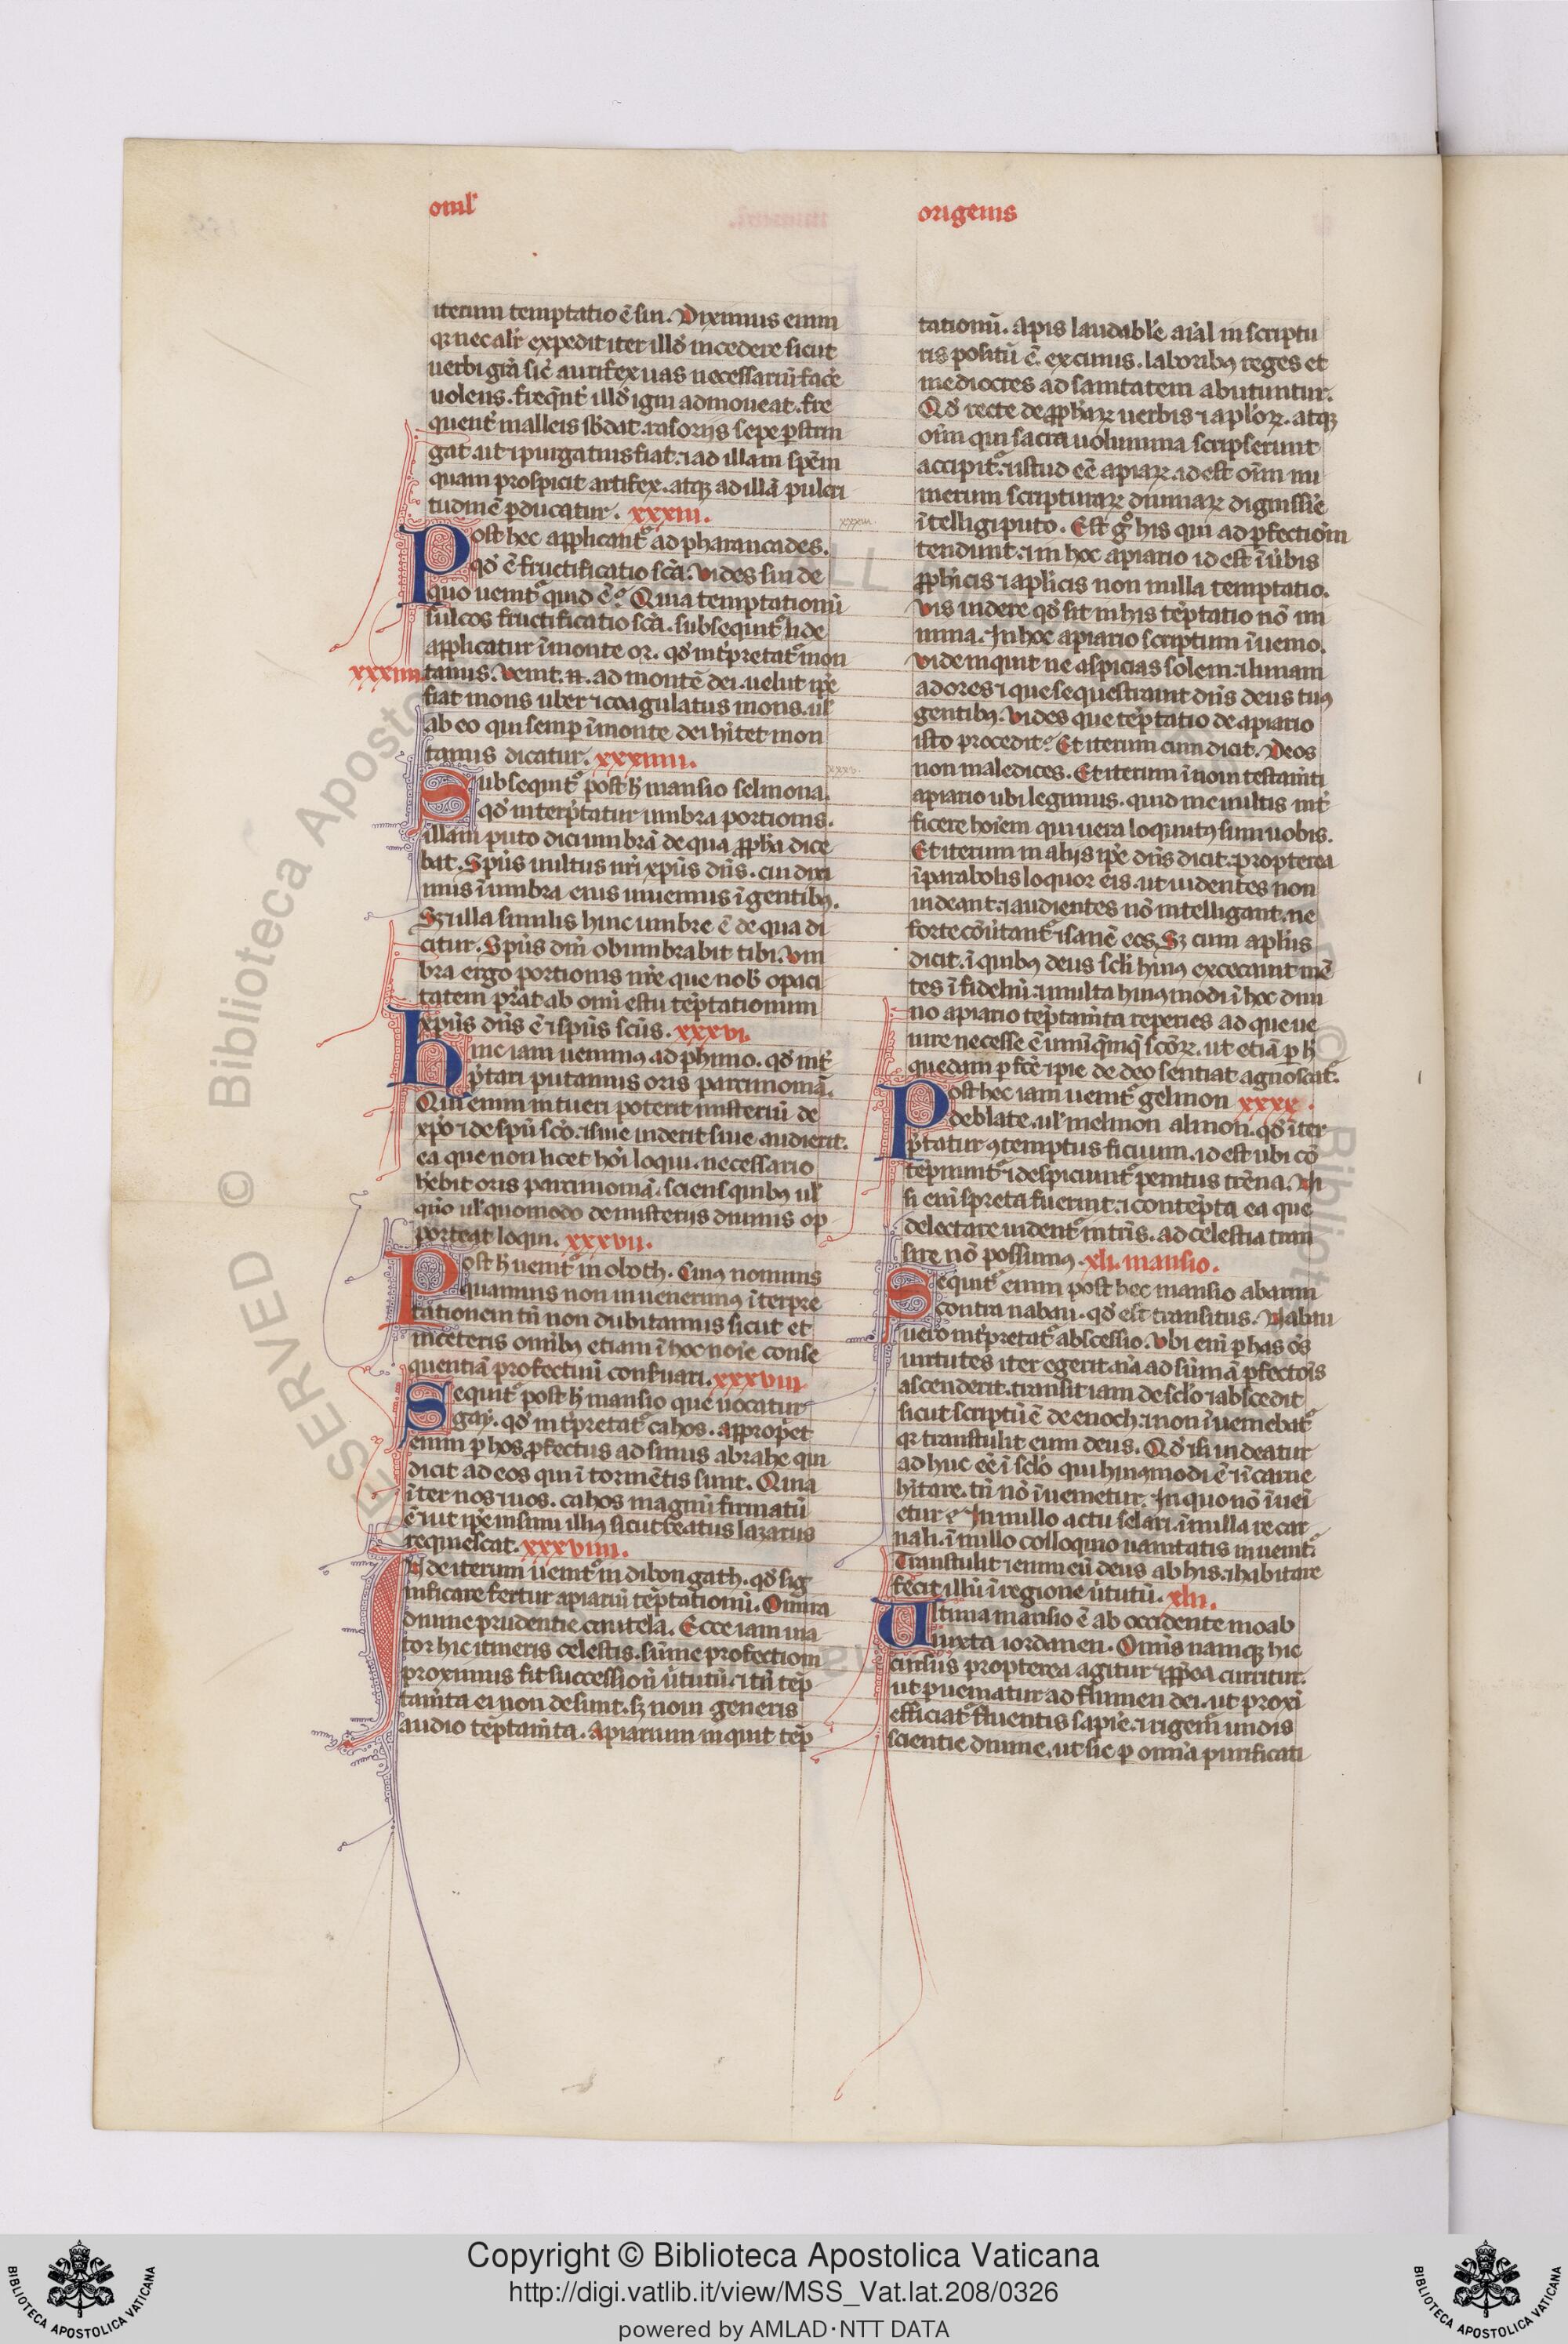 omĩ
origenis
iterum temptatio ẽ sin. Diximus enim
qꝛ nec alr̃ expedit iter illđ incedere sicut
uerbi grã sic̃ aurifex uas necessariũ facẽ
uolens. freq̃nt̃ illđ igni admoueat. fre
quent̃ malleis sƀdat. rasorijs sepe ꝑstrin
gat. ut ⁊ purgatius fiat. ⁊ ad illam spẽm
quam prospicit artifex. atqꝫ ad illã pulcri
tudinẽ ꝑducatur. xxxiii.
Post hec applicant᷑ ad pharancades.
qđ ẽ fructificatio scã. Vides sin de
quo uenit᷑ quid ẽ? Quia temptationũ
sulcos fructificatio scã. subsequit᷑ h̃ de
applicatur ĩ monte or. qđ int̃pretat᷑ mon
xxxiiii. tanus. Venit. n̄. ad montẽ dei. uelut ip̃e
fiat mons uber ⁊ coagulatus mons. ul̃
ab eo qui semꝑ ĩ monte dei hĩtet mon
tanus dicatur. xxxiiiii.
Subsequit᷑ post h̃ mansio selmona.
qđ interp̃tatur umbra portionis.
illam puto dici umbrã de qua ꝓpħa dice
bat. Spũs uultus nr̃i xp̃us dñs. cui dixi
mus ĩ umbra eius uiuemus ĩ gentibꝰ.
Sꝫ illa similis huic umbre ẽ de qua di
citur. Spũs dñi obumbrabit tibi. Vm
bra ergo portionis nr̃e que nob̃ opaci
tatem p̃rat ab omĩ estu tẽptationum
xp̃us dñs ẽ ⁊ spũs scũs. xxxvi.
Hinc iam uenimꝰ ad phimo. qđ int̃
p̃tari putamus oris parcimoniã.
Qui enim intueri poterit misteriũ de
xp̃o ⁊ de spũ scõ. ⁊ siue uiderit siue audierit.
ea que non licet hoĩ loqui. necessario
hẽbit oris parcimoniã. sciens quibꝰ ul̃
qñ̃o ul̃ quomodo de misterijs diuinis op
porteat loqui. xxxvii.
Post h̃ uenit᷑ in oboth. Cuiꝰ nominis
quamuis non inuenerimꝰ ĩterpre
tationem tñ non dubitamus sicut et
in ceteris omĩbꝰ etiam ĩ hoc noĩe conse
quentiã profectuũ conseruari. xxxviii
Sequit᷑ post h̃ mansio que uocatur
gay. qđ int̃pretat᷑ cahos. appropet
enim ꝑ hos ꝓfectus ad sinus abrahe qui
dicit ad eos qui ĩ tormẽtis sunt. Quia
ĩter nos ⁊ uos. cahos magnũ firmatũ
ẽ ⁊ ut ip̃e in sinu illiꝰ sicut beatus lazarus
requiescat. xxxviiii.
Inde iterum uenit᷑ in dibon gath. qđ sig
nificare fertur apiariũ tẽptationũ. O mira
diuine prudentie cautela. Ecce iam uia
tor hic itineris celestis. sũme profectioni
proximus fit successiõũ ũtutũ. ⁊ tñ tẽp
tam̃ta ei non desunt. sꝫ noui generis
audio tẽptam̃ta. Apiarium inquit tẽp
tationũ. Apis laudabl̃e aĩal in scriptu
ris positũ ẽ. ex cuius. laboribꝰ reges et
mediocres ad sanitatem abutuntur.
Qđ recte de ꝓpħaꝝ uerbis ⁊ apl̃oꝝ. atqꝫ
oĩm qui sacra uolumina scripserunt
accipit᷑. ⁊ istud eẽ apiaꝝ. id est oĩm nu
merum scripturaꝝ diuinaꝝ dignissĩe
ĩtelligi puto. Est gᵒ his qui ad ꝑfectiõm
tendunt. ⁊ in hoc apiario id est ĩ ũbis
ꝓpħicis ⁊ apl̃icis non nulla temptatio.
Vis uidere qđ sit in his tẽptatio nõ mi
nima. In hoc apiario scriptum ĩuenio.
Vide inquit ne aspicias solem. ⁊ lunam
adores ⁊ que sequestrauit dñs deus tuꝰ
gentibꝰ. Vides que tẽptatio de apiario
isto procedit? Et iterum cum dicit. Deos
non maledices. Et iterum ĩ noui testam̃ti
apiario ubi legimus. quid me uultis int̃
ficere hoĩem qui uera loquutꝰ sum uobis.
Et iterum in alijs ip̃e dñs dicit. propterea
ĩ parabolis loquor eis. ut uidentes non
uideant. ⁊ audientes nõ intelligant. ne
forte cõũtant᷑ ⁊ sanẽ eos. Sꝫ cum apl̃us
dicit. ĩ quibꝰ deus scl̃i huiꝰ excecauit mẽ
tes ĩfideliũ. ⁊ multa huiꝰmodi ĩ hoc diui
no apiario tẽptam̃ta reperies ad que ue
nire necesse ẽ unũq̃mqꝫ scõꝝ. ut etiã ꝑ h̃
quedam ꝑfec̃te ⁊ pie de deo sentiat agnoscat᷑.
Post hec iam uenit᷑ gelmon xxxx.
deblate. ul̃ melmon almon. qđ ĩter
p̃tatur ꝯtemptus ficuum. id est ubi cõ
tẽpnunt᷑ ⁊ despiciunt᷑ penitus trẽna. Ni
si eni͂ spreta fuerint. ⁊ contẽpta ea que
delectare uident᷑ in tr̃is. ad celestia tran
sire nõ possumus. xli. mansio.
Sequit᷑ enim post hec mansio abarim
contra nabau. qđ est transitus. Nabau
uero int̃pretat᷑ abscessio. Vbi eni͂ ꝑ has õs
uirtutes iter egerit aĩa ad sũmã ꝑfectõis
ascenderit. transit iam de scl̃o ⁊ abscedit
sicut scriptũ ẽ de enoch. ⁊ non ĩueniebat᷑
qꝛ transtulit eum deus. Qđ ⁊ si uideatur
ad huc eẽ ĩ scl̃o qui huiꝰmodi ẽ ⁊ ĩ carne
hĩtare. tñ nõ ĩuenietur. In quo nõ ĩueĩ
etur? In nullo actu sclari. ĩ nulla re car
nali. ĩ nullo colloquio uanitatis inuenit᷑.
Transtulit ⁊ enim eũ deus ab his. ⁊ habitare
fecit illũ ĩ regione ũtutũ. xlii.
Ultima mansio ẽ ab occidente moab
iuxta iordanen. Omĩs namqꝫ hic
cursus propterea agitur ⁊ ꝓpt̃ea curritur.
ut ꝑueniatur ad flumen dei. ut proxĩ
efficiat᷑ fluentis sapiẽ. ⁊ rigem̃ undis
scientie diuine. ut sic ꝑ omĩa purificati
Copyright © Biblioteca Apostolica Vaticana
http://digi.vatlib.it/view/MSS_Vat.lat.208/0326
powered by AMLAD·NTT DATA